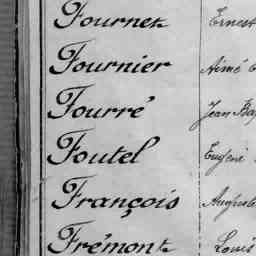 Fournet Ernest
Fournier Aimé
Fourré Jean Ba
Foutel Eugène
François Auguste
Frémont Louis